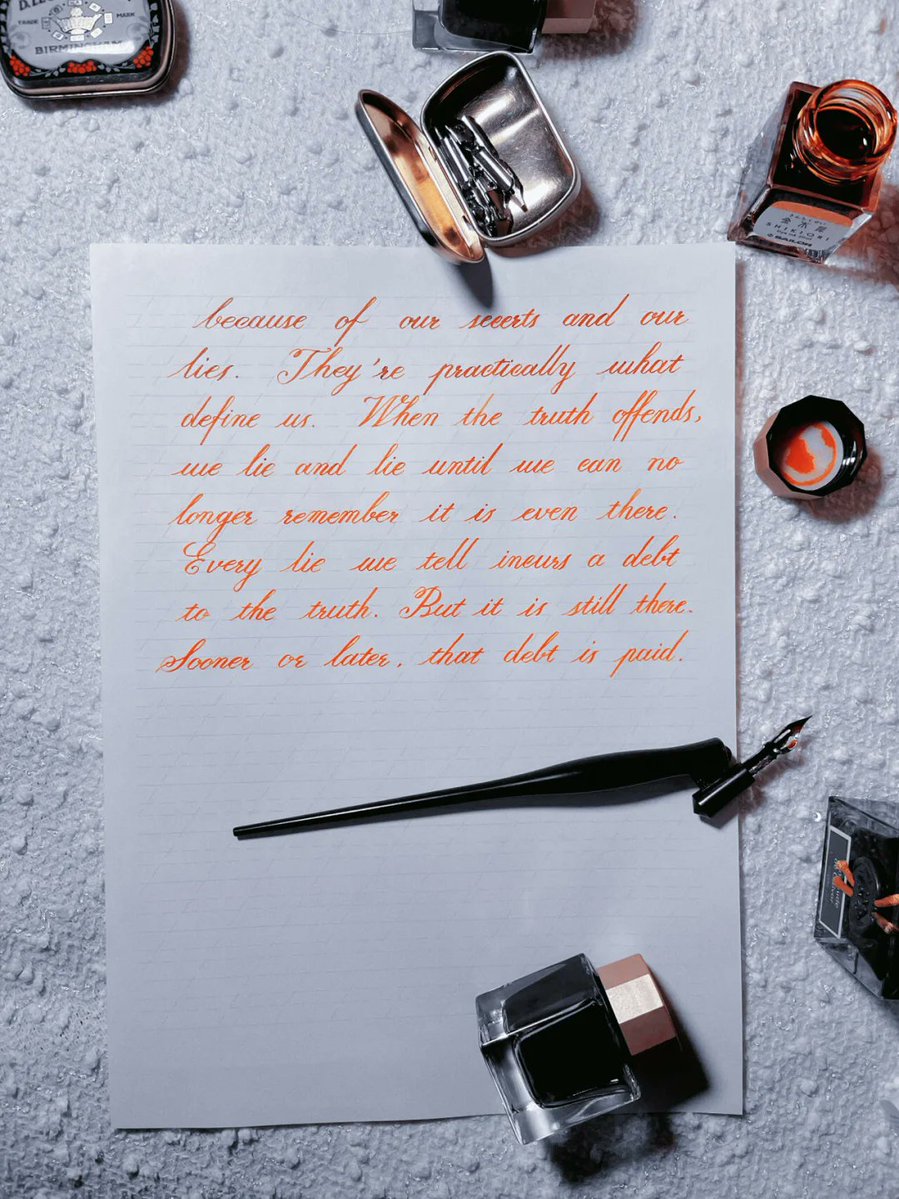 TRADE MARK
BIRMINGHAM
金木犀
SHIKIORI
SAILOR
because of our sceerts and our
lies. They're practically what
define us. When the truth offends,
we lie and lie until we can no
longer remember it is even there.
Every lie we tell incurs a debt
to the truth. But it is still there.
Sooner or later, that debt is paid.